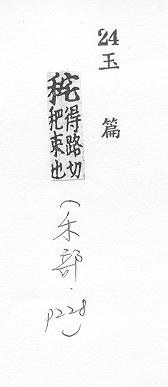 24
玉篇
得路切
束也
(禾部·
p228)